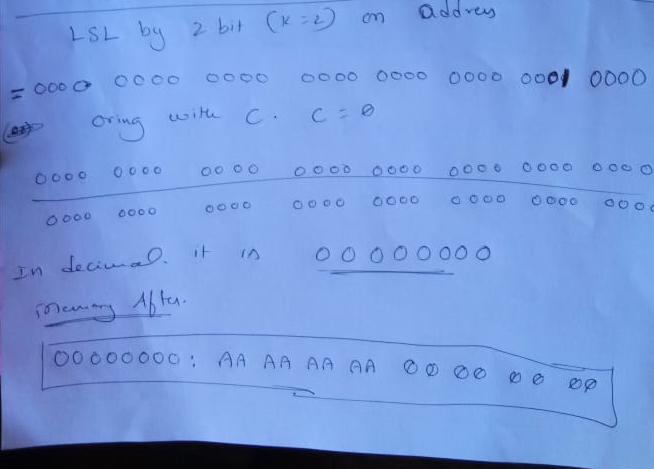 LSL by 2 bit (K=2) on address
= 0000 0000 0000 0000 0000 0000 0001 0000
oring with C. C = 0
0000 0000 0000 0000 0000 0000 0000 0000
0000 0000 0000 0000 0000 0000 0000 0000
In decimal. it is 00000000
Memory After.
00000000: AA AA AA AA 00 00 00 00